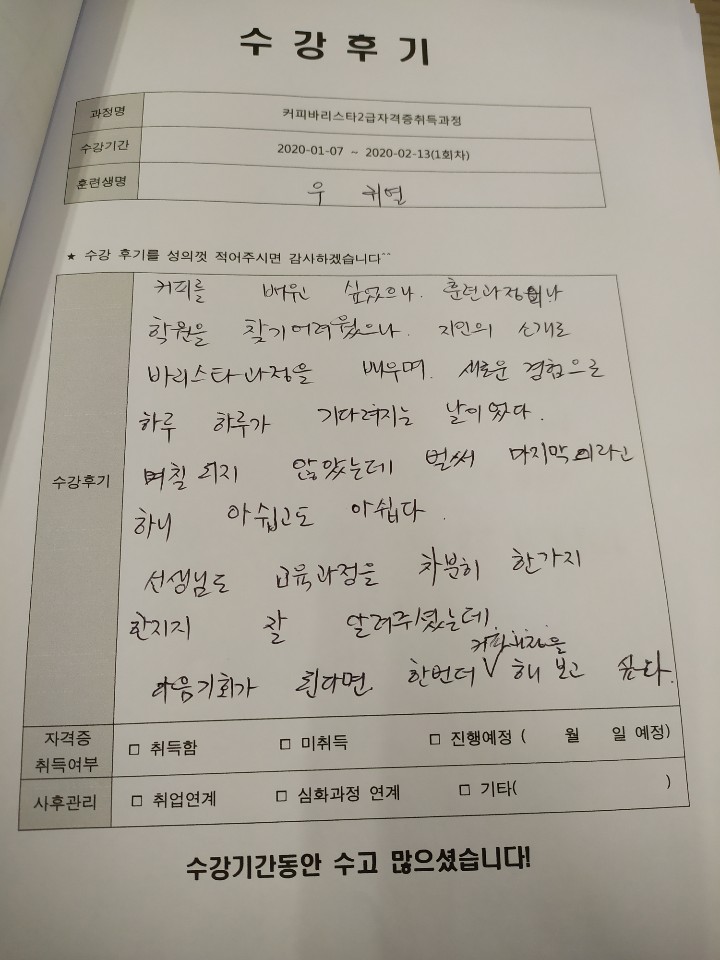 수 강 후 기
과정명 커피바리스타2급자격증취득과정
수강기간 2020-01-07 ~ 2020-02-13(1회차)
훈련생명 우 귀연
★ 수강 후기를 성의껏 적어주시면 감사하겠습니다^^
수강후기
커피를 배우고 싶었으나. 훈련과정이나
학원을 찾기어려웠으나. 지인의 소개로
바리스타과정을 배우며. 새로운 경험으로
하루 하루가 기다려지는 날이었다.
며칠 되지 않았는데 벌써 마지막이라고
하니 아쉽고도 아쉽다.
선생님도 교육과정을 차분히 한가지
한지지 잘 알려주셨는데.
다음기회가 된다면. 한번더 ∨ 해 보고 싶다.
자격증 취득여부 □ 취득함 □ 미취득 □ 진행예정 ( 월 일 예정)
사후관리 □ 취업연계 □ 심화과정 연계 □ 기타( )
수강기간동안 수고 많으셨습니다!